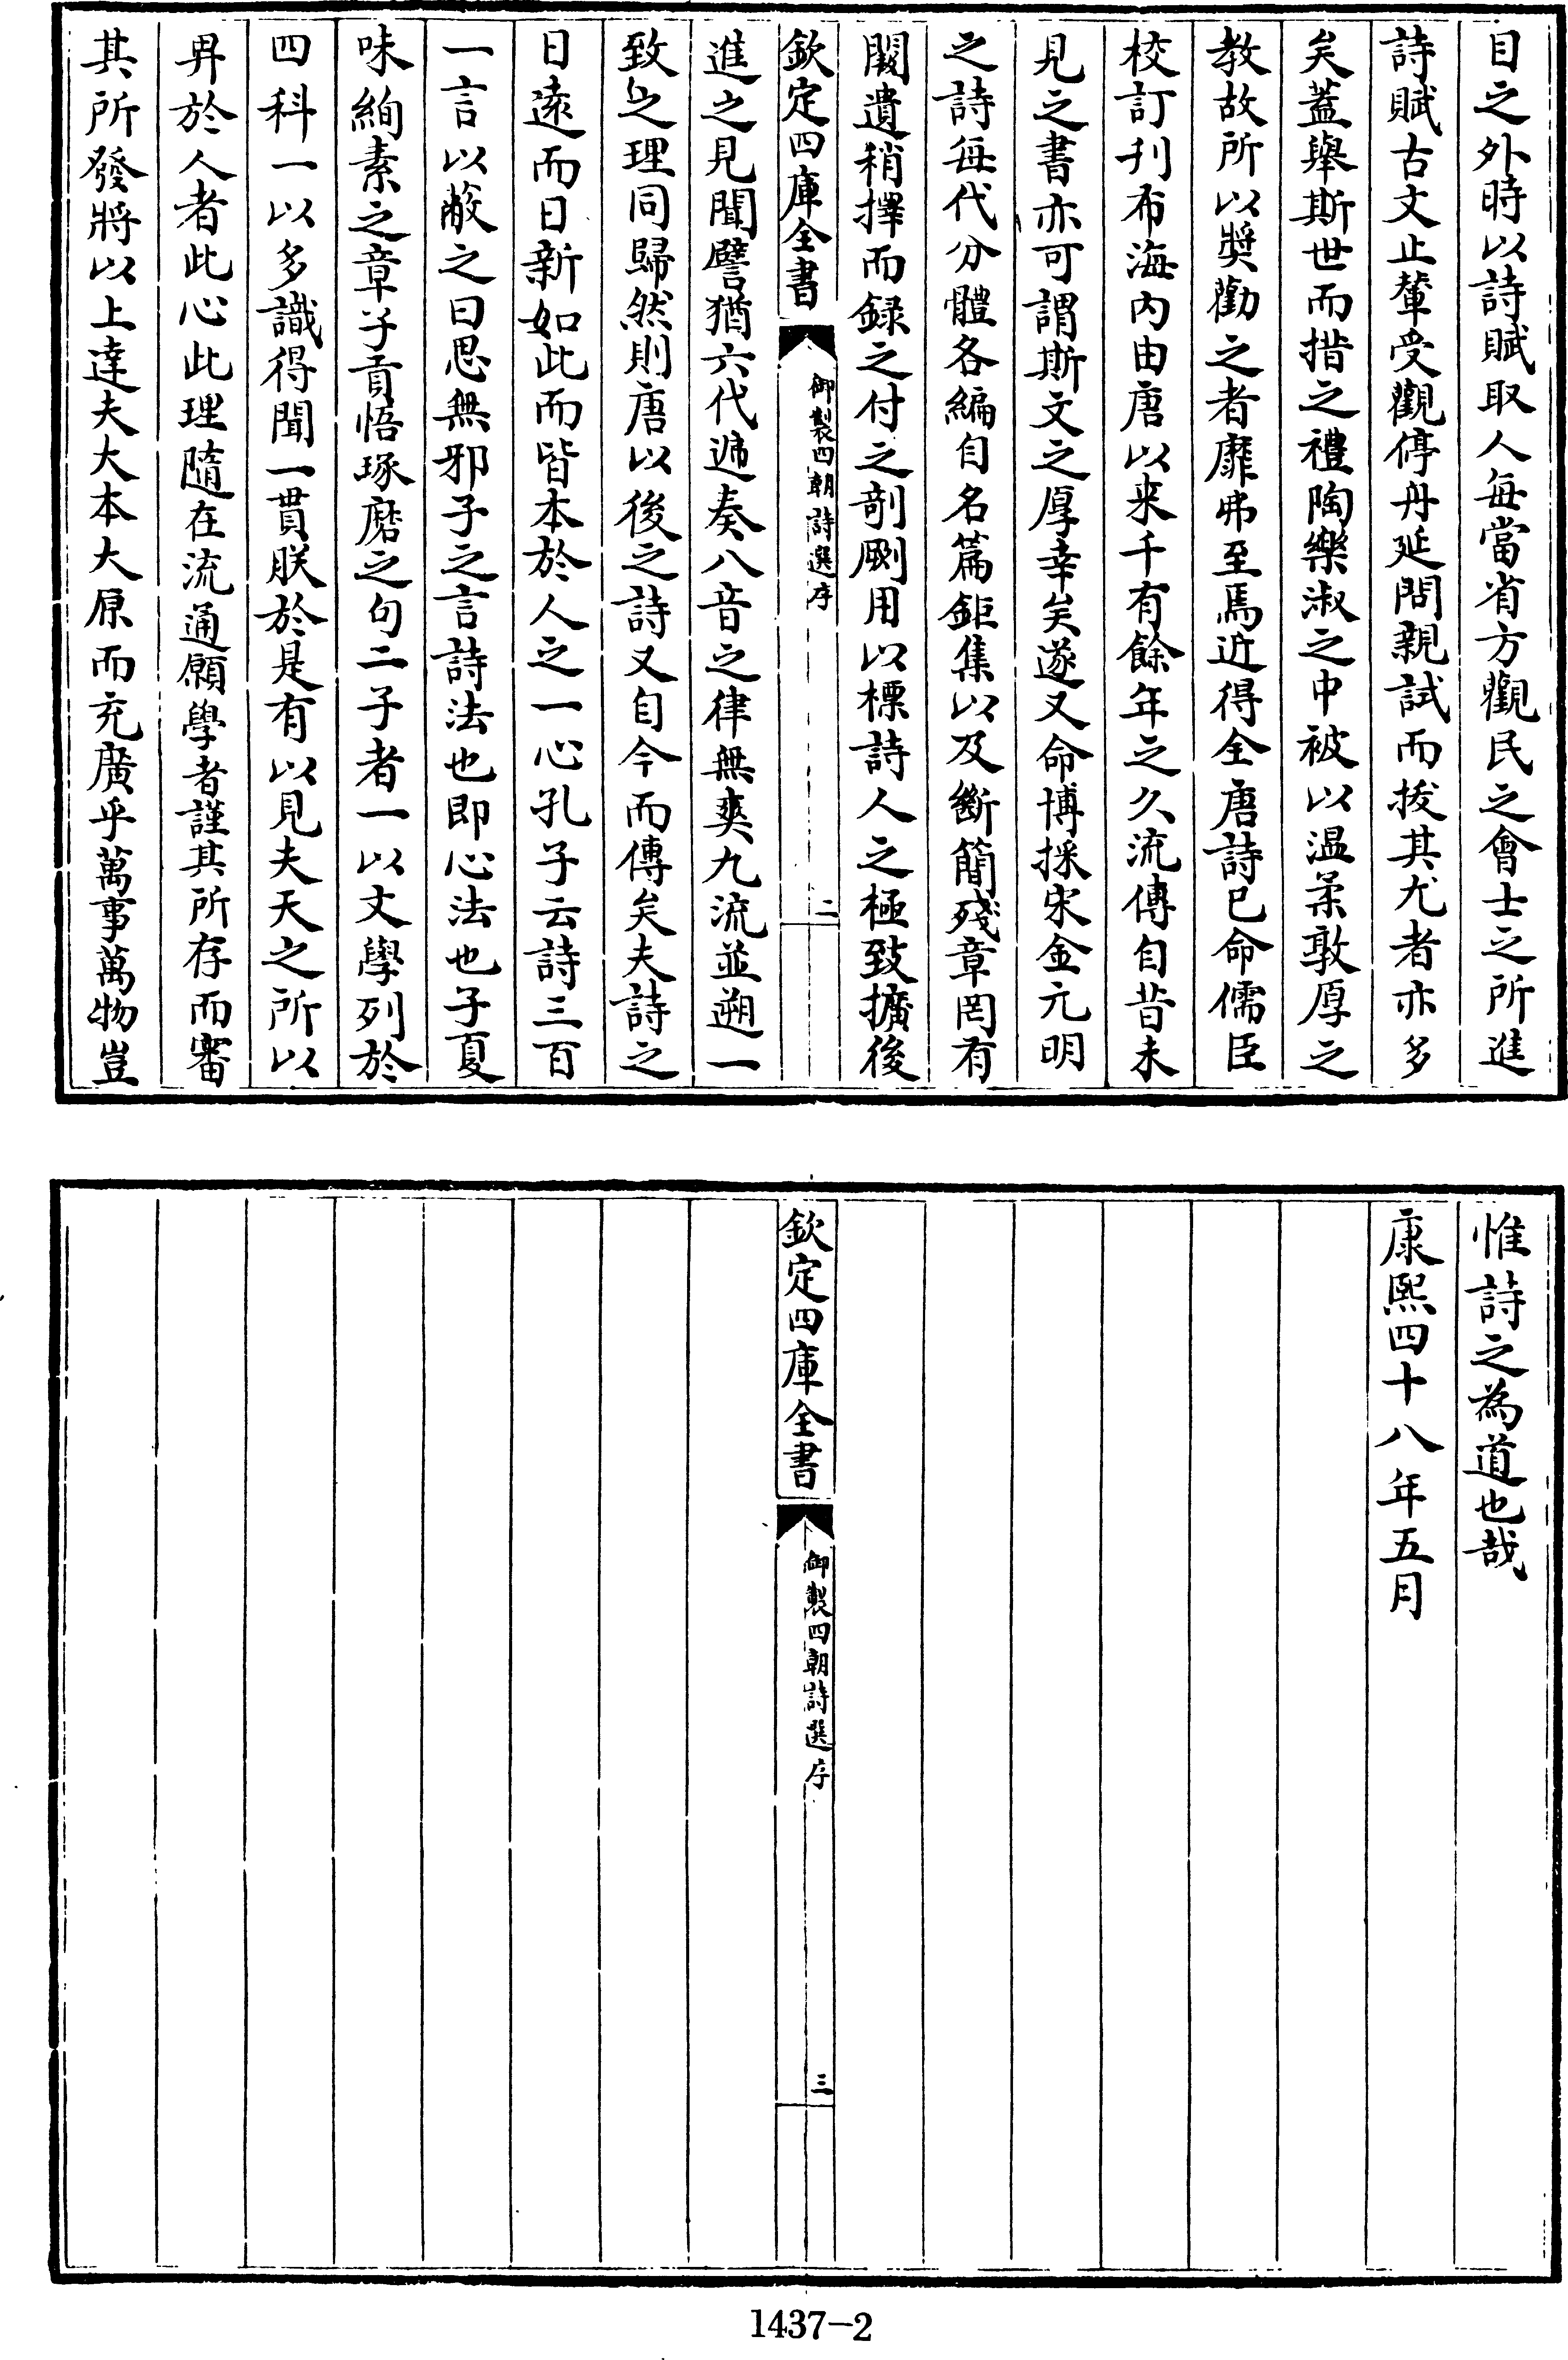 目之外時以詩賦取人每當省方觀民之會士之所進
詩賦古文止輦受觀停丹延問親試而拔其尤者亦多
矣葢舉斯世而措之禮陶樂淑之中被以温柔敦厚之
教故所以奬勸之者靡弗至焉近得全唐詩已命儒臣
校訂刋布海内由唐以来千有餘年之久流傳自昔未
見之書亦可謂斯文之厚幸矣遂又命博採宋金元明
之詩每代分體各編自名篇鉅集以及斷簡殘章罔有
闕遺稍擇而録之付之剞劂用以標詩人之極致擴後
欽定四庫全書
御製四朝詩選序
二
進之見聞譬猶六代遞奏八音之律無爽九流並遡一
致之理同歸然則唐以後之詩又自今而傳矣夫詩之
日遠而日新如此而皆本於人之一心孔子云詩三百
一言以蔽之曰思無邪子之言詩法也即心法也子夏
味絢素之章子貢悟琢磨之句二子者一以文學列於
四科一以多識得聞一貫朕於是有以見夫天之所以
畀於人者此心此理隨在流通願學者謹其所存而審
其所發將以上達夫大本大原而充廣乎萬事萬物豈
惟詩之為道也哉
康熙四十八年五月
欽定四庫全書
御製四朝詩選序
三
1437-2